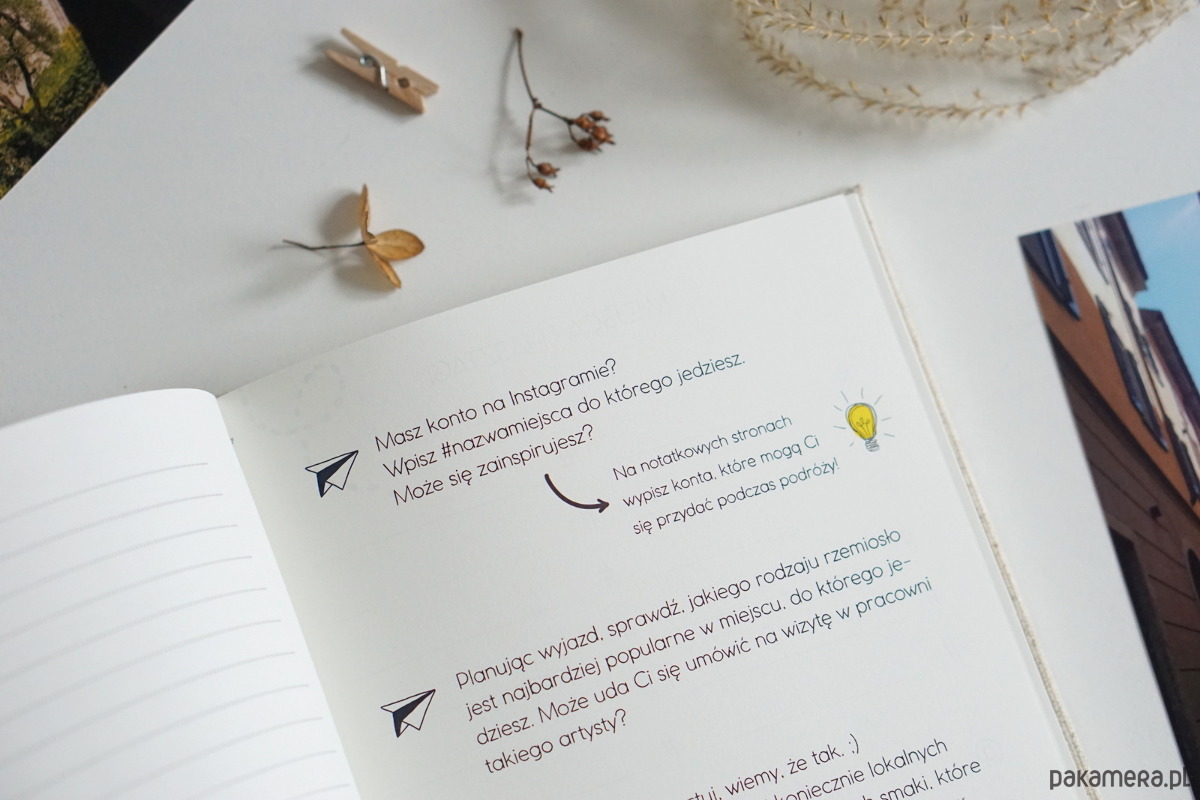 Masz konto na Instagramie?
Wpisz #nazwamiejsca do którego jedziesz.
Może się zainspirujesz?
Na notatkowych stronach
wypisz konta, które mogą Ci
się przydać podczas podróży!
Planując wyjazd, sprawdź, jakiego rodzaju rzemiosło
jest najbardziej popularne w miejscu, do którego je-
dziesz. Może uda Ci się umówić na wizytę w pracowni
takiego artysty?
wiemy, że tak. :)
koniecznie lokalnych
smaki, które
pakamera.pl